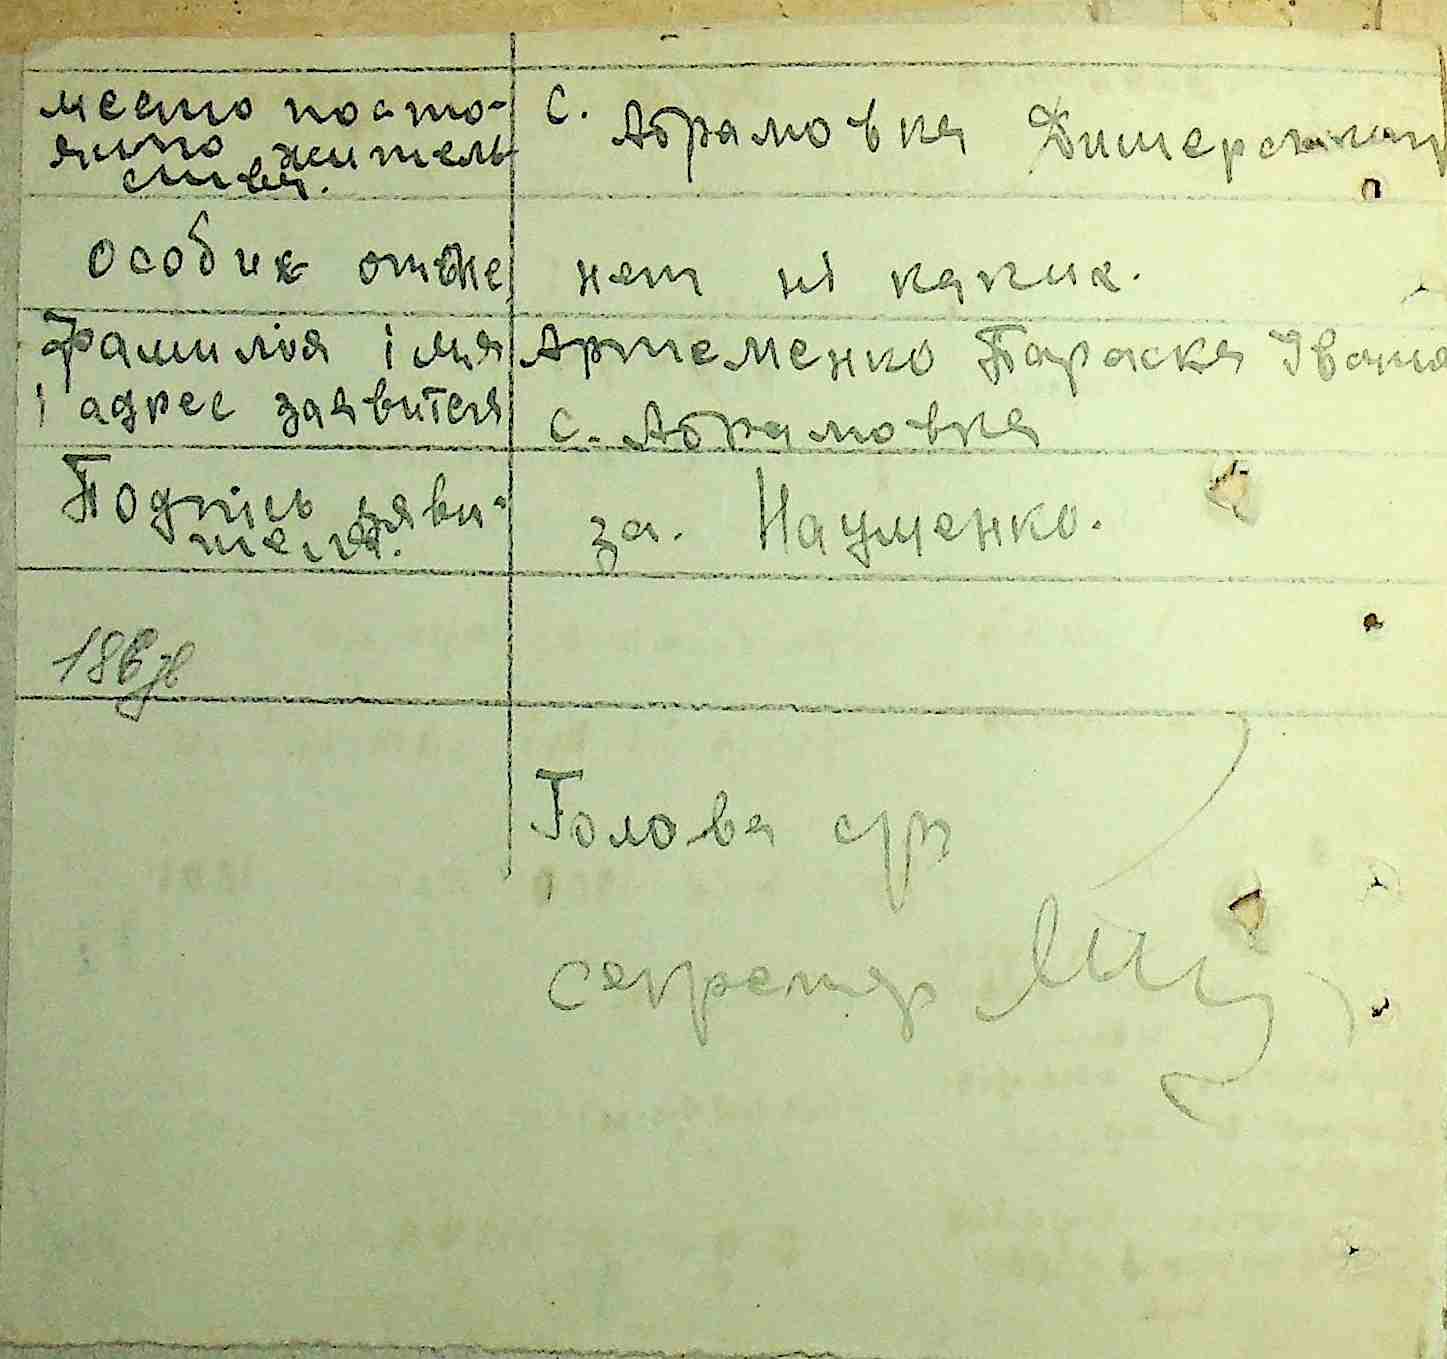 место посто-
яного жительь
ства.
с. Абрамовка Димерский
Особие отме
нет ні каких.
Фамилия імя
і адрес заявителя
Артеменко Параска Івано
с. Абрамовка
Подпісь заяви-
теля.
за. Науменко.
Голова с/р
секретар